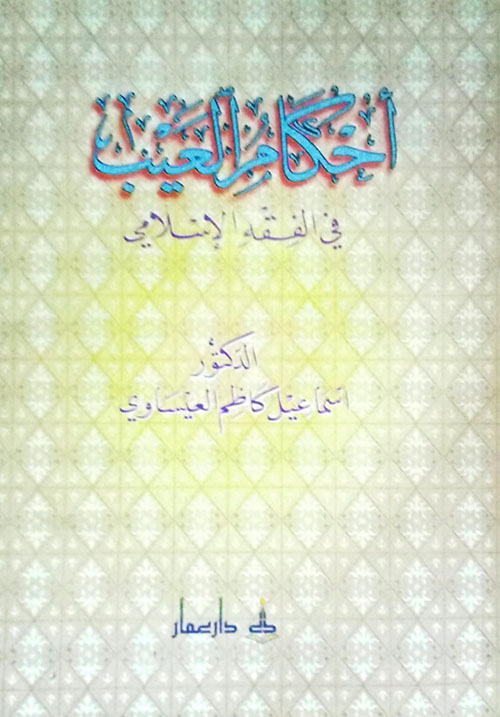 أحكام العيب
في الفقه الإسلامي
الدكتور
اسماعيل كاظم العيساوي
دار عمار